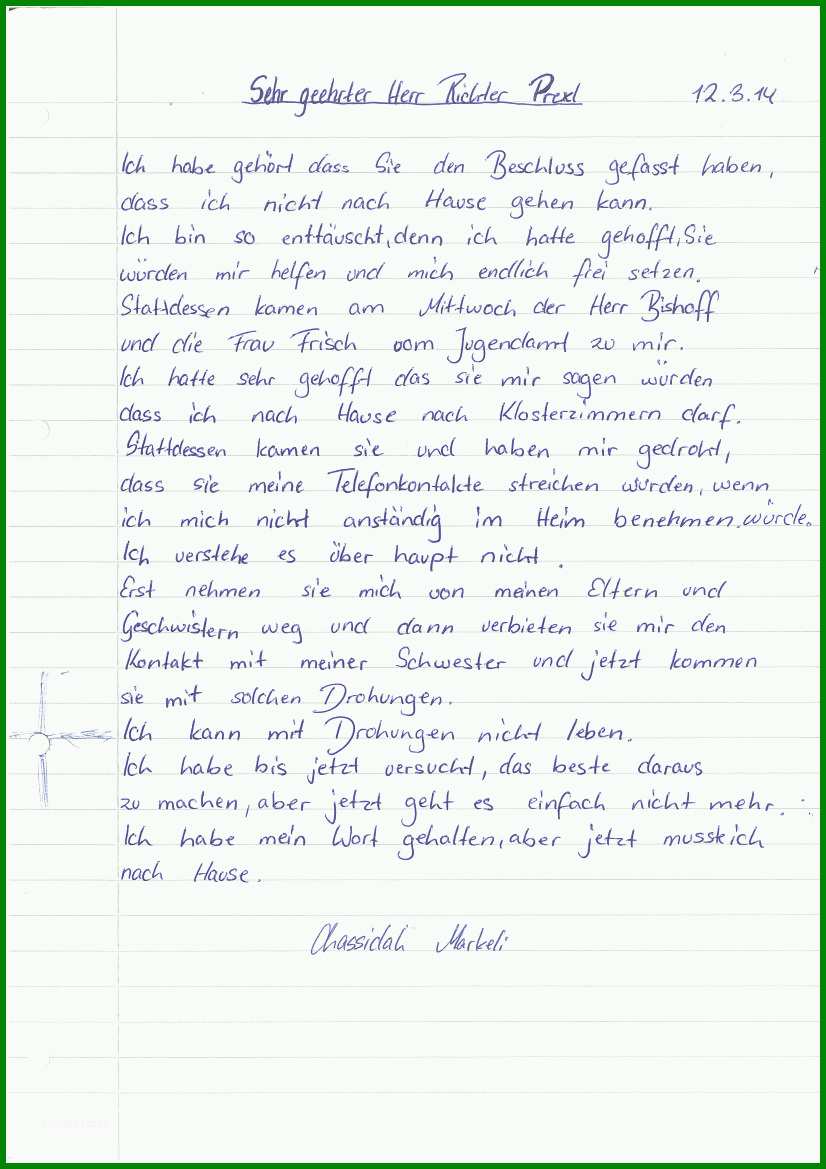 Sehr geehrter Herr Richter Prexl 12.3.14
Ich habe gehört dass Sie den Beschluss gefasst haben,
dass ich nicht nach Hause gehen kann.
Ich bin so enttäuscht, denn ich hatte gehofft, Sie
würden mir helfen und mich endlich frei setzen.
Stattdessen kamen am Mittwoch der Herr Bishoff
und die Frau Frisch vom Jugendamt zu mir.
Ich hatte sehr gehofft das sie mir sagen würden
dass ich nach Hause nach Klosterzimmern darf.
Stattdessen kamen sie und haben mir gedroht,
dass sie meine Telefonkontakte streichen wurden, wenn
ich mich nicht anständig im Heim benehmen würde.
Ich verstehe es über haupt nicht.
Erst nehmen sie mich von meinen Eltern und
Geschwistern weg und dann verbieten sie mir den
Kontakt mit meiner Schwester und jetzt kommen
sie mit solchen Drohungen.
Ich kann mit Drohungen nicht leben.
Ich habe bis jetzt versucht, das beste daraus
zu machen, aber jetzt geht es einfach nicht mehr.
Ich habe mein Wort gehalten, aber jetzt muss ich
nach Hause.
Chassidah Markeli